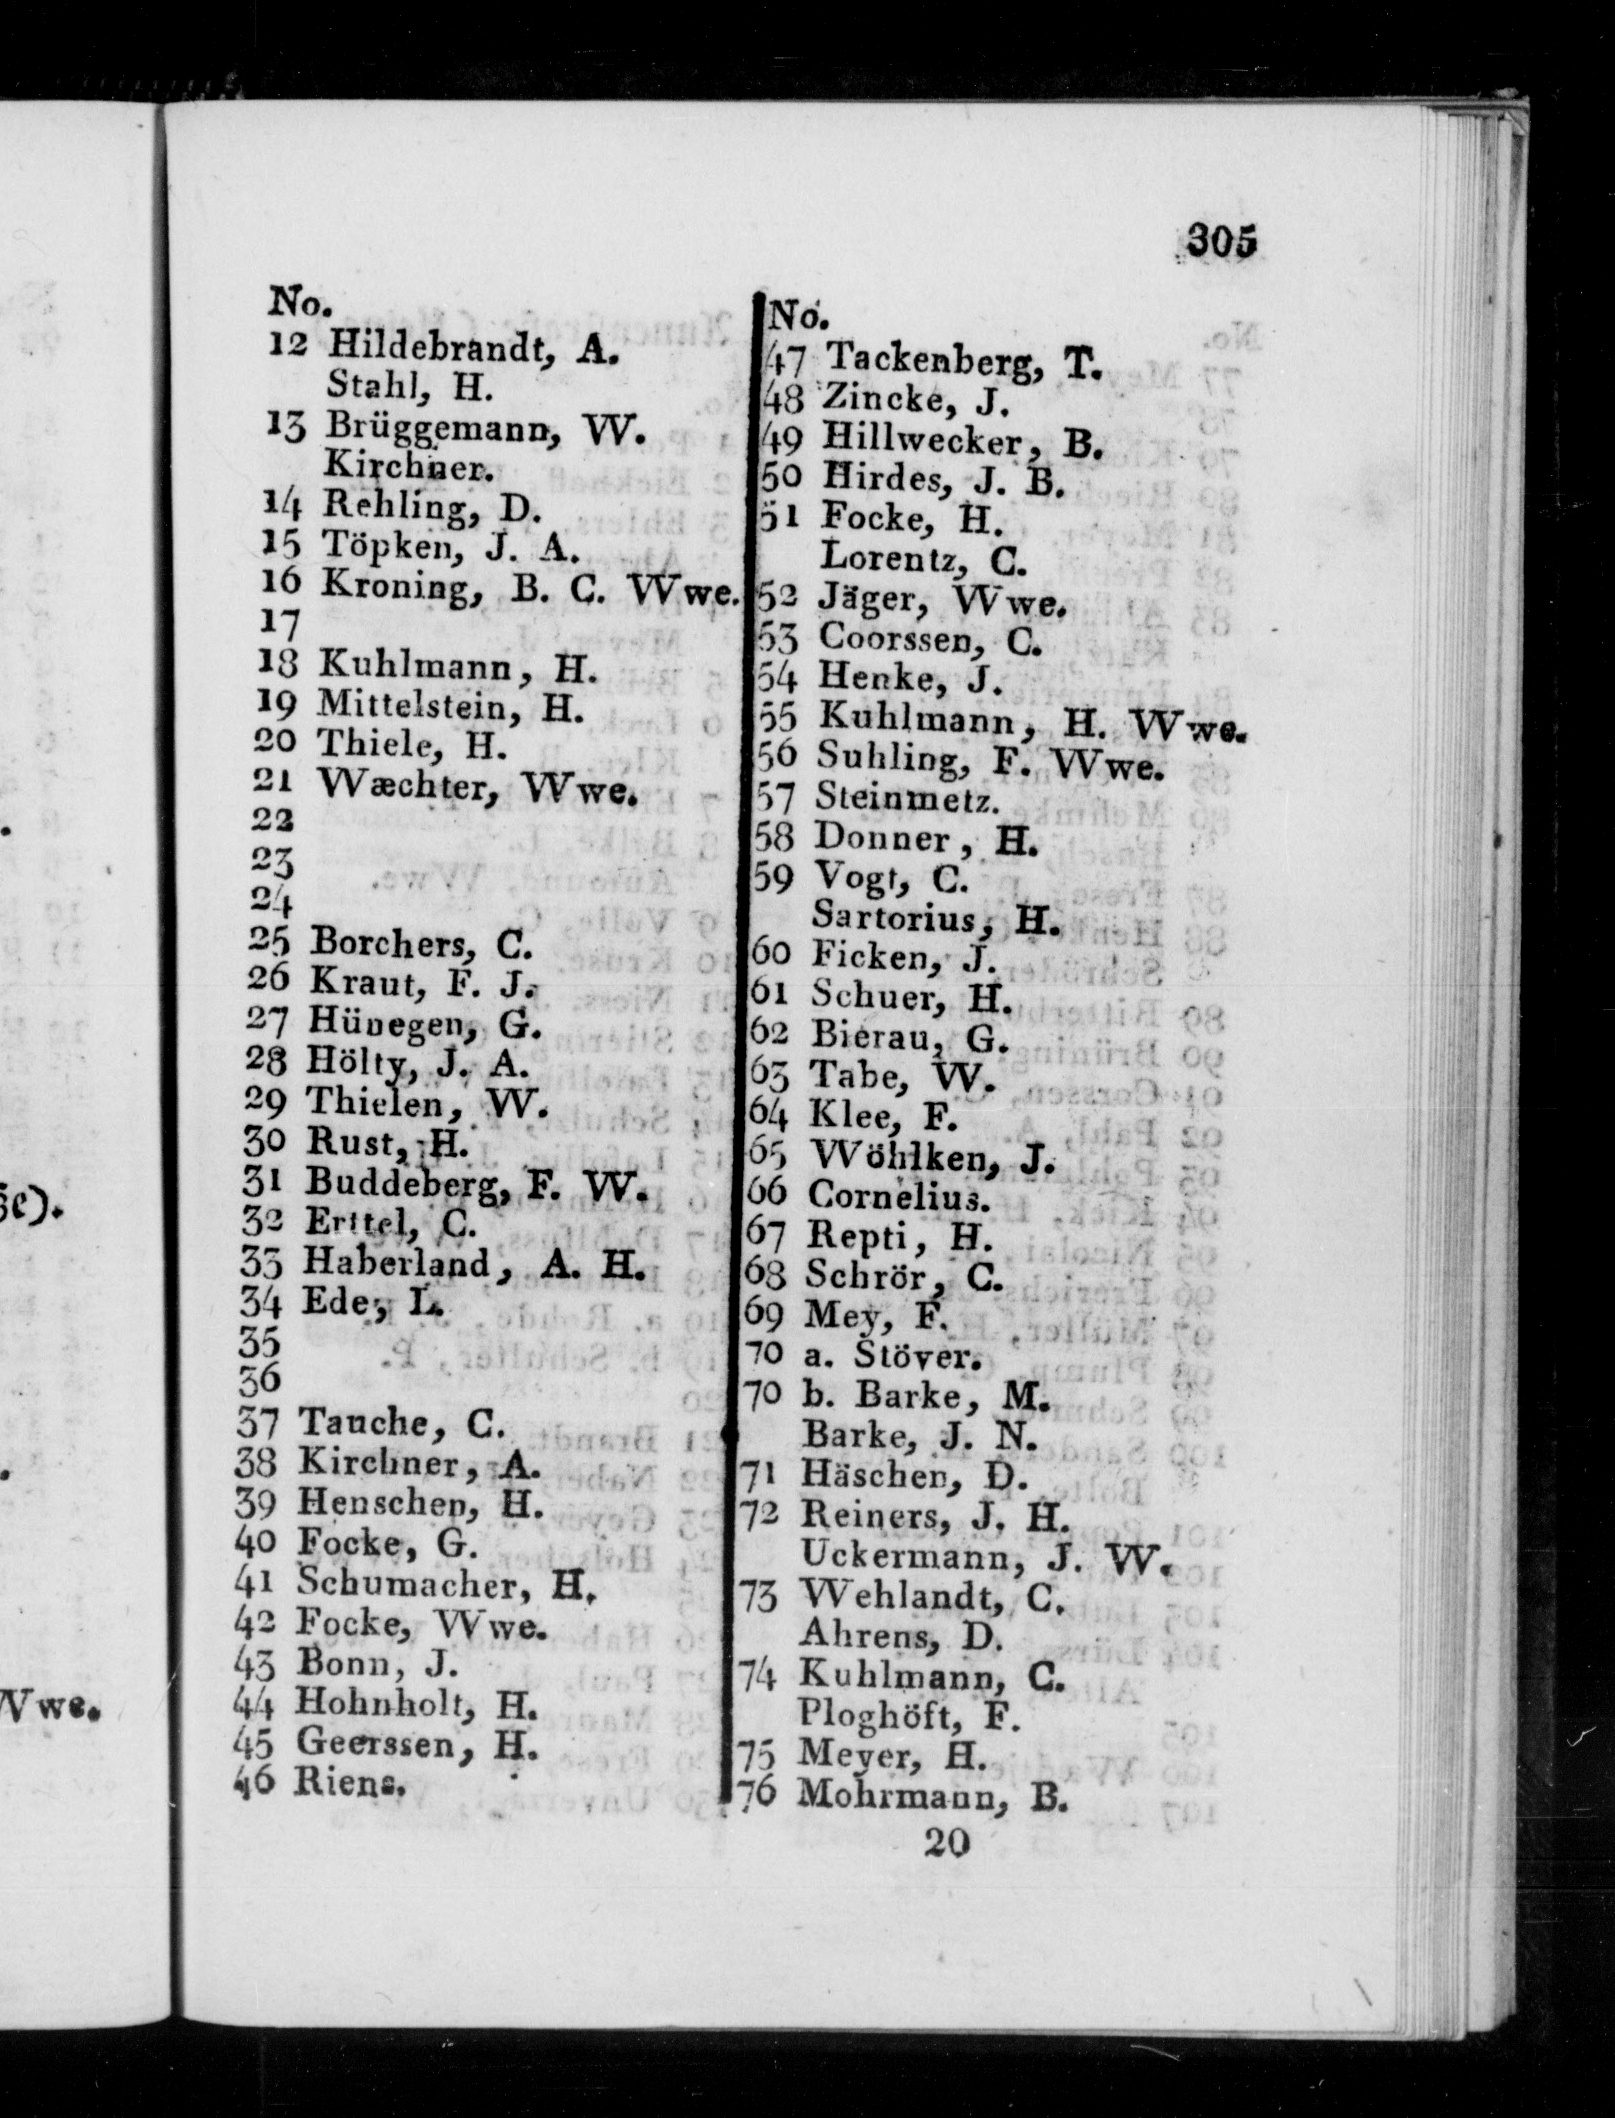 305
No.
12 Hildebrandt, A.
Stahl, H.
13 Brüggemann, W.
Kirchner.
14 Rehling, D.
15 Töpken, J. A.
16 Kroning, B. C. Wwe.
17
18 Kuhlmann, H.
19 Mittelstein, H.
20 Thiele, H.
21 Wæchter, Wwe.
22
23
24
25 Borchers, C.
26 Kraut, F. J.
27 Hünegen, G.
28 Hölty, J. A.
29 Thielen, W.
30 Rust, H.
31 Buddeberg, F. W.
32 Erttel, C.
33 Haberland, A. H.
34 Ede, L.
35
36
37 Tauche, C.
38 Kirchner, A.
39 Henschen, H.
40 Focke, G.
41 Schumacher, H.
42 Focke, Wwe.
43 Bonn, J.
44 Hohnholt, H.
45 Geerssen, H.
46 Riens.
No.
47 Tackenberg, T.
48 Zincke, J.
49 Hillwecker, B.
50 Hirdes, J. B.
51 Focke, H.
Lorentz, C.
52 Jäger, Wwe.
53 Coorssen, C.
54 Henke, J.
55 Kuhlmann, H. Wwe.
56 Suhling, F. Wwe.
57 Steinmetz.
58 Donner, H.
59 Vogt, C.
Sartorius, H.
60 Ficken, J.
61 Schuer, H.
62 Bierau, G.
63 Tabe, W.
64 Klee, F.
65 Wöhlken, J.
66 Cornelius.
67 Repti, H.
68 Schrör, C.
69 Mey, F.
70 a. Stöver.
70 b. Barke, M.
Barke, J. N.
71 Häschen, D.
72 Reiners, J. H.
Uckermann, J. W.
73 Wehlandt, C.
Ahrens, D.
74 Kuhlmann, C.
Ploghöft, F.
75 Meyer, H.
76 Mohrmann, B.
20